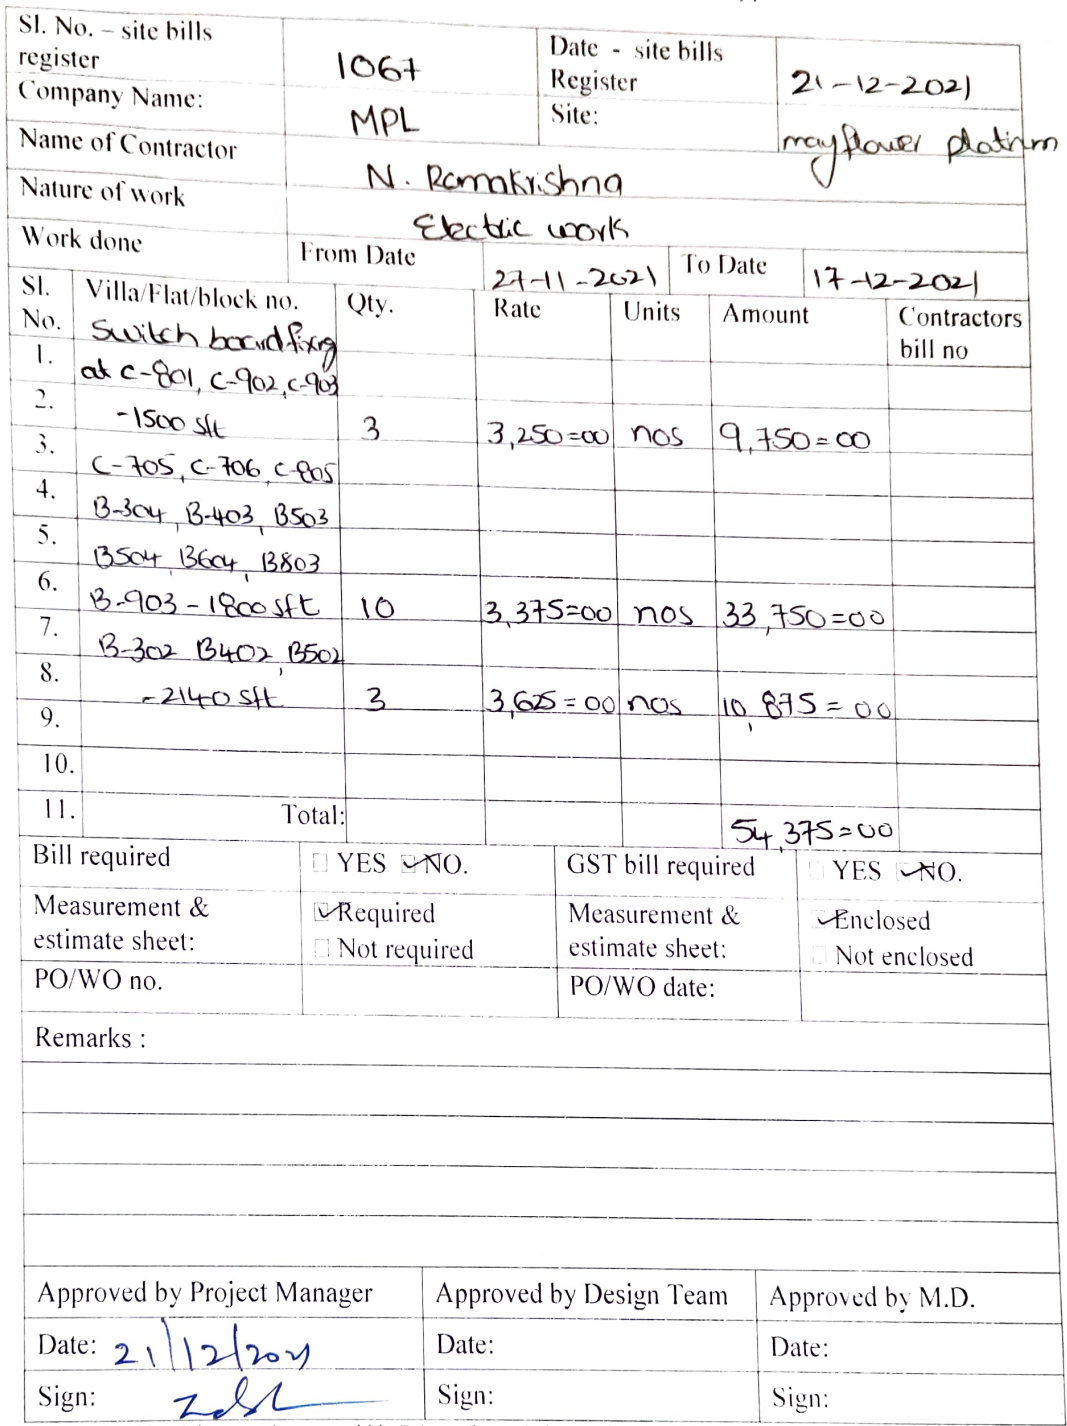 Sl. No. – site bills register 1067 Date - site bills Register 21-12-2021
Company Name: MPL Site: mayflower platinm
Name of Contractor N. Ramakrishna
Nature of work Electric work
Work done From Date 27-11-2021 To Date 17-12-2021
Sl. No. Villa/Flat/block no. Qty. Rate Units Amount Contractors bill no
Switch board fixing
1. at C-801, C-902, C-903
2. -1500 sft 3 3,250=00 nos 9,750=00
3. C-705, C-706, C-805
4. B-304, B-403, B503
5. B504, B604, B803
6. B-903 - 1800 sft 10 3,375=00 nos 33,750=00
7. B-302 B402, B502
8. -2140 sft 3 3,625=00 nos 10,875=00
9.
10.
11. Total: 54,375=00
Bill required YES NO. GST bill required YES NO.
Measurement & estimate sheet: Required Not required Measurement & estimate sheet: Enclosed Not enclosed
PO/WO no. PO/WO date:
Remarks :
Approved by Project Manager Approved by Design Team Approved by M.D.
Date: 21/12/2021 Date: Date:
Sign: Sign: Sign: